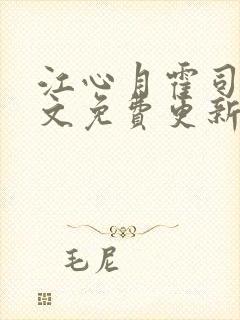 江心月霍司
文免费更新
毛尼